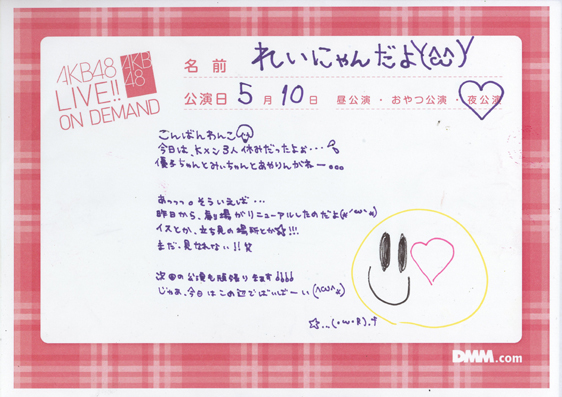 AKB48
LIVE!!
ON DEMAND
AKB
48
名前 れいにゃんだよ
公演日 5月10日 昼公演・おやつ公演・夜公演
こんばんわんこ
今日は、Kメン3人休みだったよぉ・・・
優子ちゃんとみぃちゃんとあやりんがねー。。。
あっっっ。そういえば・・・
昨日から、劇場がリニューアルしたのだよ(*´ω`*)
イスとか、立ち見の場所とか☆!!!
まだ、見なれない!!
次回の公演も頑張ります!!!!
じゃぁ、今日はこの辺でばいばーい(^ω^*)
DMM.com